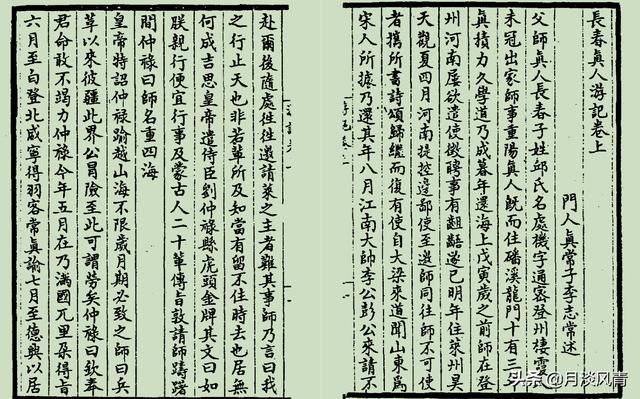 長春眞人游記卷上
門人眞常子李志常述
父師眞人長春子姓邱氏名處機字通密登州棲霞
未冠出家師事重陽眞人既而住磻溪龍門十有三
眞積力久學道乃成暮年還海上戊寅歲之前師在登
州河南屢欲遣使徵聘事有齟齬遂已明年住萊州昊
天觀夏四月河南提控邊鄙使至邀師同往師不可使
者攜所書詩頌歸繼而復有使自大梁來道聞山東爲
宋人所據乃還其年八月江南大帥李公彭公來請不
赴爾後隨處往往邀請萊之主者難其事師乃言曰我
之行止天也非若輩所及知當有留不住時去也居無
何成吉思皇帝遣侍臣劉仲祿縣虎頭金牌其文曰如
朕親行便宜行事及蒙古人二十輩傳旨敦請師躊躇
間仲祿曰師名重四海
皇帝特詔仲祿踰越山海不限歲月期必致之師曰兵
革以來彼疆此界公冒險至此可謂勞矣仲祿曰欽奉
君命敢不竭力仲祿今年五月在乃滿國兀里朶得旨
六月至白登北威寧得羽客常眞諭七月至德興以居
头条@月淡风青